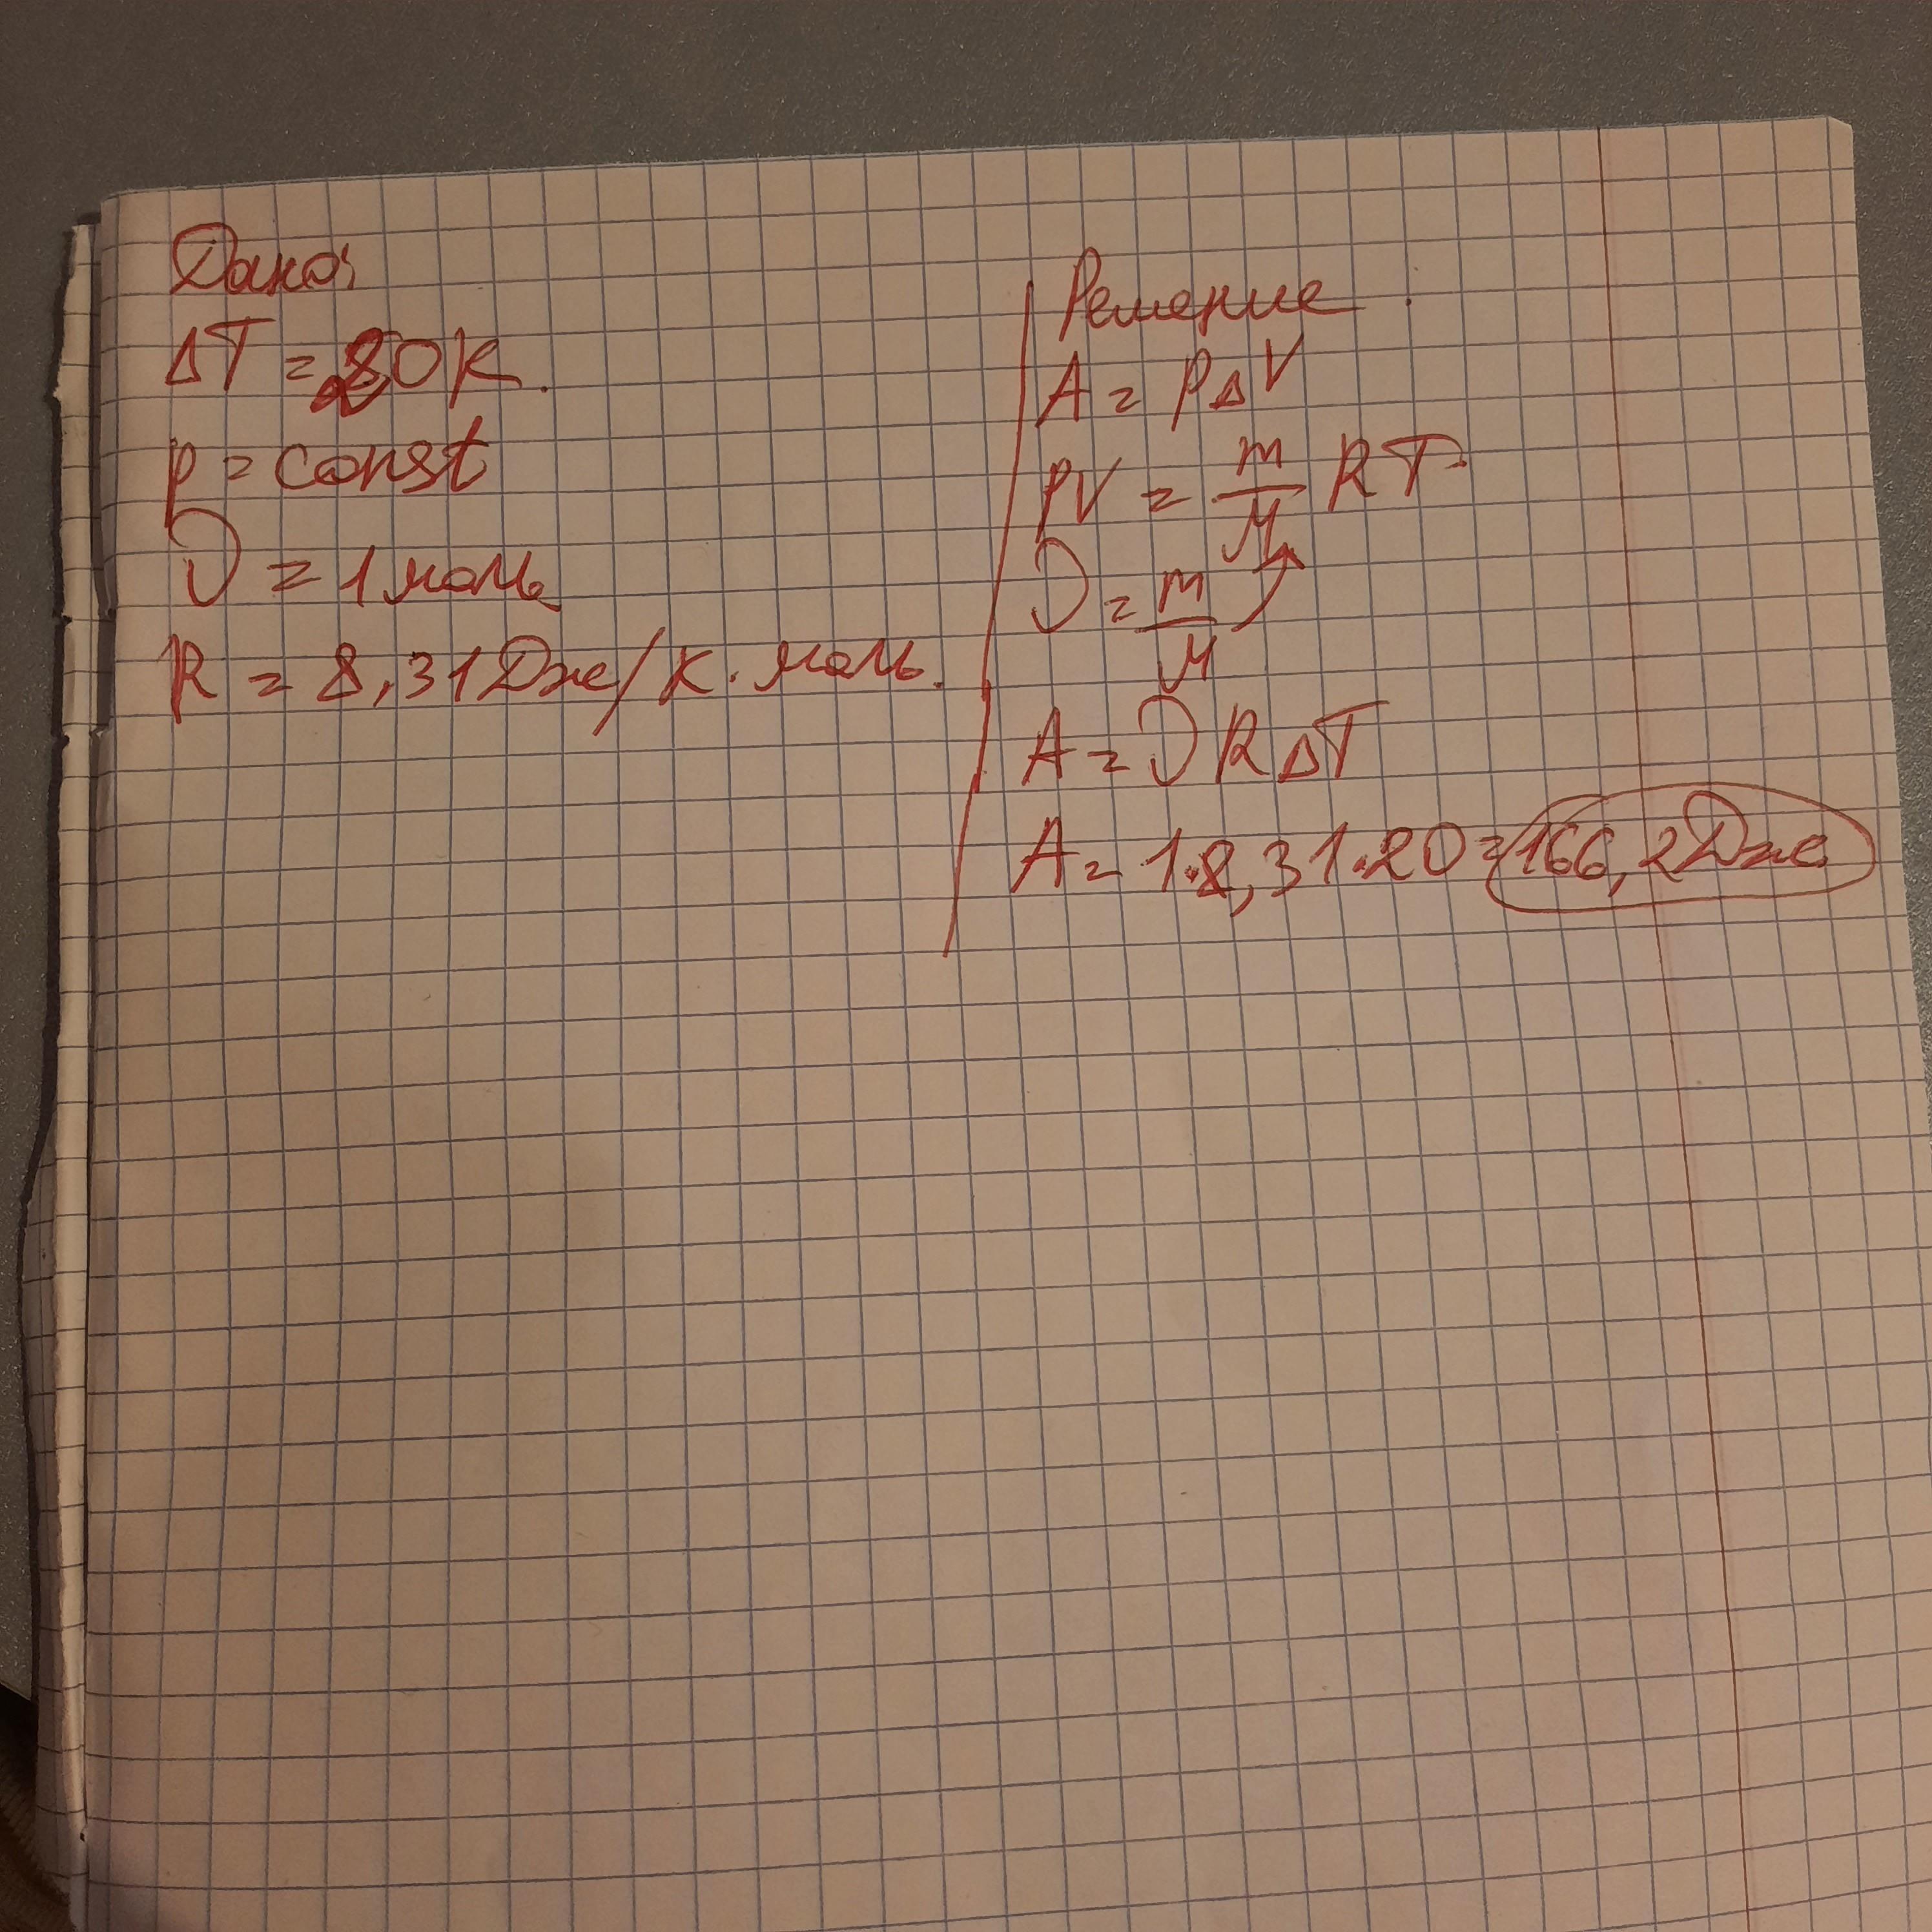 Дано:
ΔT = 20K.
p = const
ν = 1 моль
R = 8,31 Дж/К·моль.
Решение.
A = pΔV
pV = m/M RT
ν = m/M
A = νRΔT
A = 1·8,31·20 = 166,2 Дж